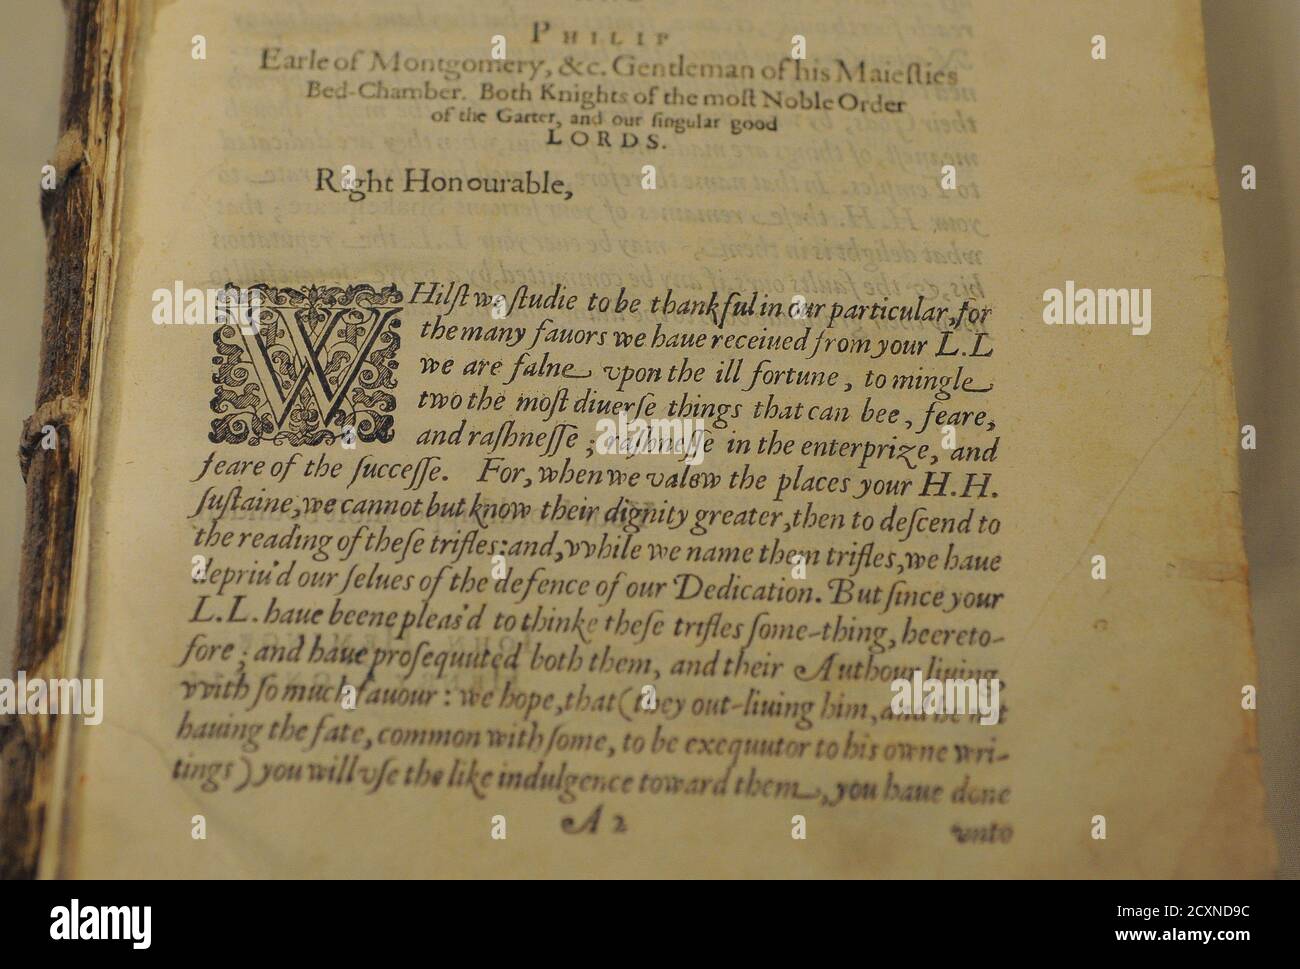 PHILIP
Earle of Montgomery, &c. Gentleman of his Maieſties
Bed-Chamber. Both Knights of the moſt Noble Order
of the Garter, and our ſingular good
LORDS.
Right Honourable,
WHilſt we ſtudie to be thankful in our particular, for
the many fauors we haue receiued from your L.L
we are falne vpon the ill fortune, to mingle
two the moſt diuerſe things that can bee, feare,
and raſhneſſe; raſhneſſe in the enterprize, and
feare of the ſucceſſe. For, when we valew the places your H.H.
ſuſtaine, we cannot but know their dignity greater, then to deſcend to
the reading of theſe trifles: and, vvhile we name them trifles, we haue
depriu'd our ſelues of the defence of our Dedication. But ſince your
L.L. haue beene pleas'd to thinke theſe trifles ſome-thing, heereto-
fore; and haue proſequuted both them, and their Authour liuing,
vvith ſo much fauour: we hope, that (they out-liuing him, and he not
hauing the fate, common with ſome, to be exequutor to his owne wri-
tings) you will vſe the like indulgence toward them, you haue done
A 2
unto
alamy
Image ID: 2CXND9C
www.alamy.com